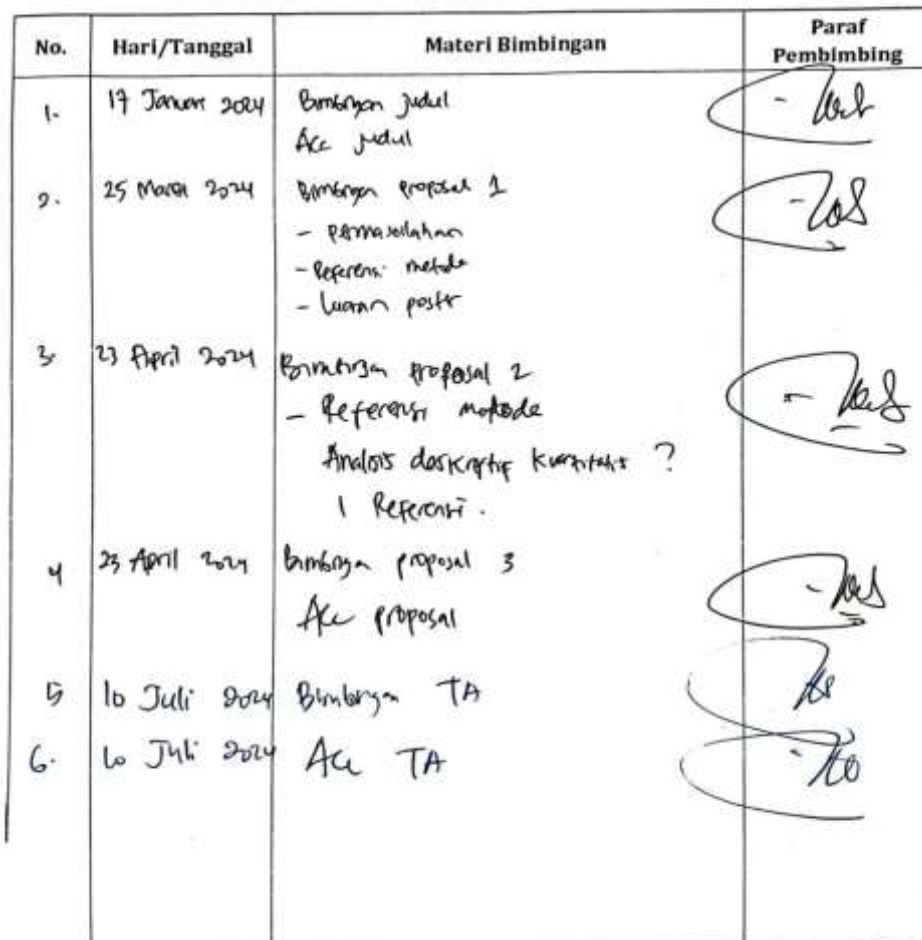 No. Hari/Tanggal Materi Bimbingan Paraf Pembimbing
1. 17 Januari 2024 Bimbingan judul
Acc judul
2. 25 Maret 2024 Bimbingan proposal 1
- permasalahan
- Referensi metode
- luaran poster
3. 23 April 2024 Bimbingan proposal 2
- Referensi metode
Analisis deskriptif kuantitatif ?
1 Referensi.
4 23 April 2024 Bimbingan proposal 3
Acc proposal
5 10 Juli 2024 Bimbingan TA
6. 10 Juli 2024 Acc TA